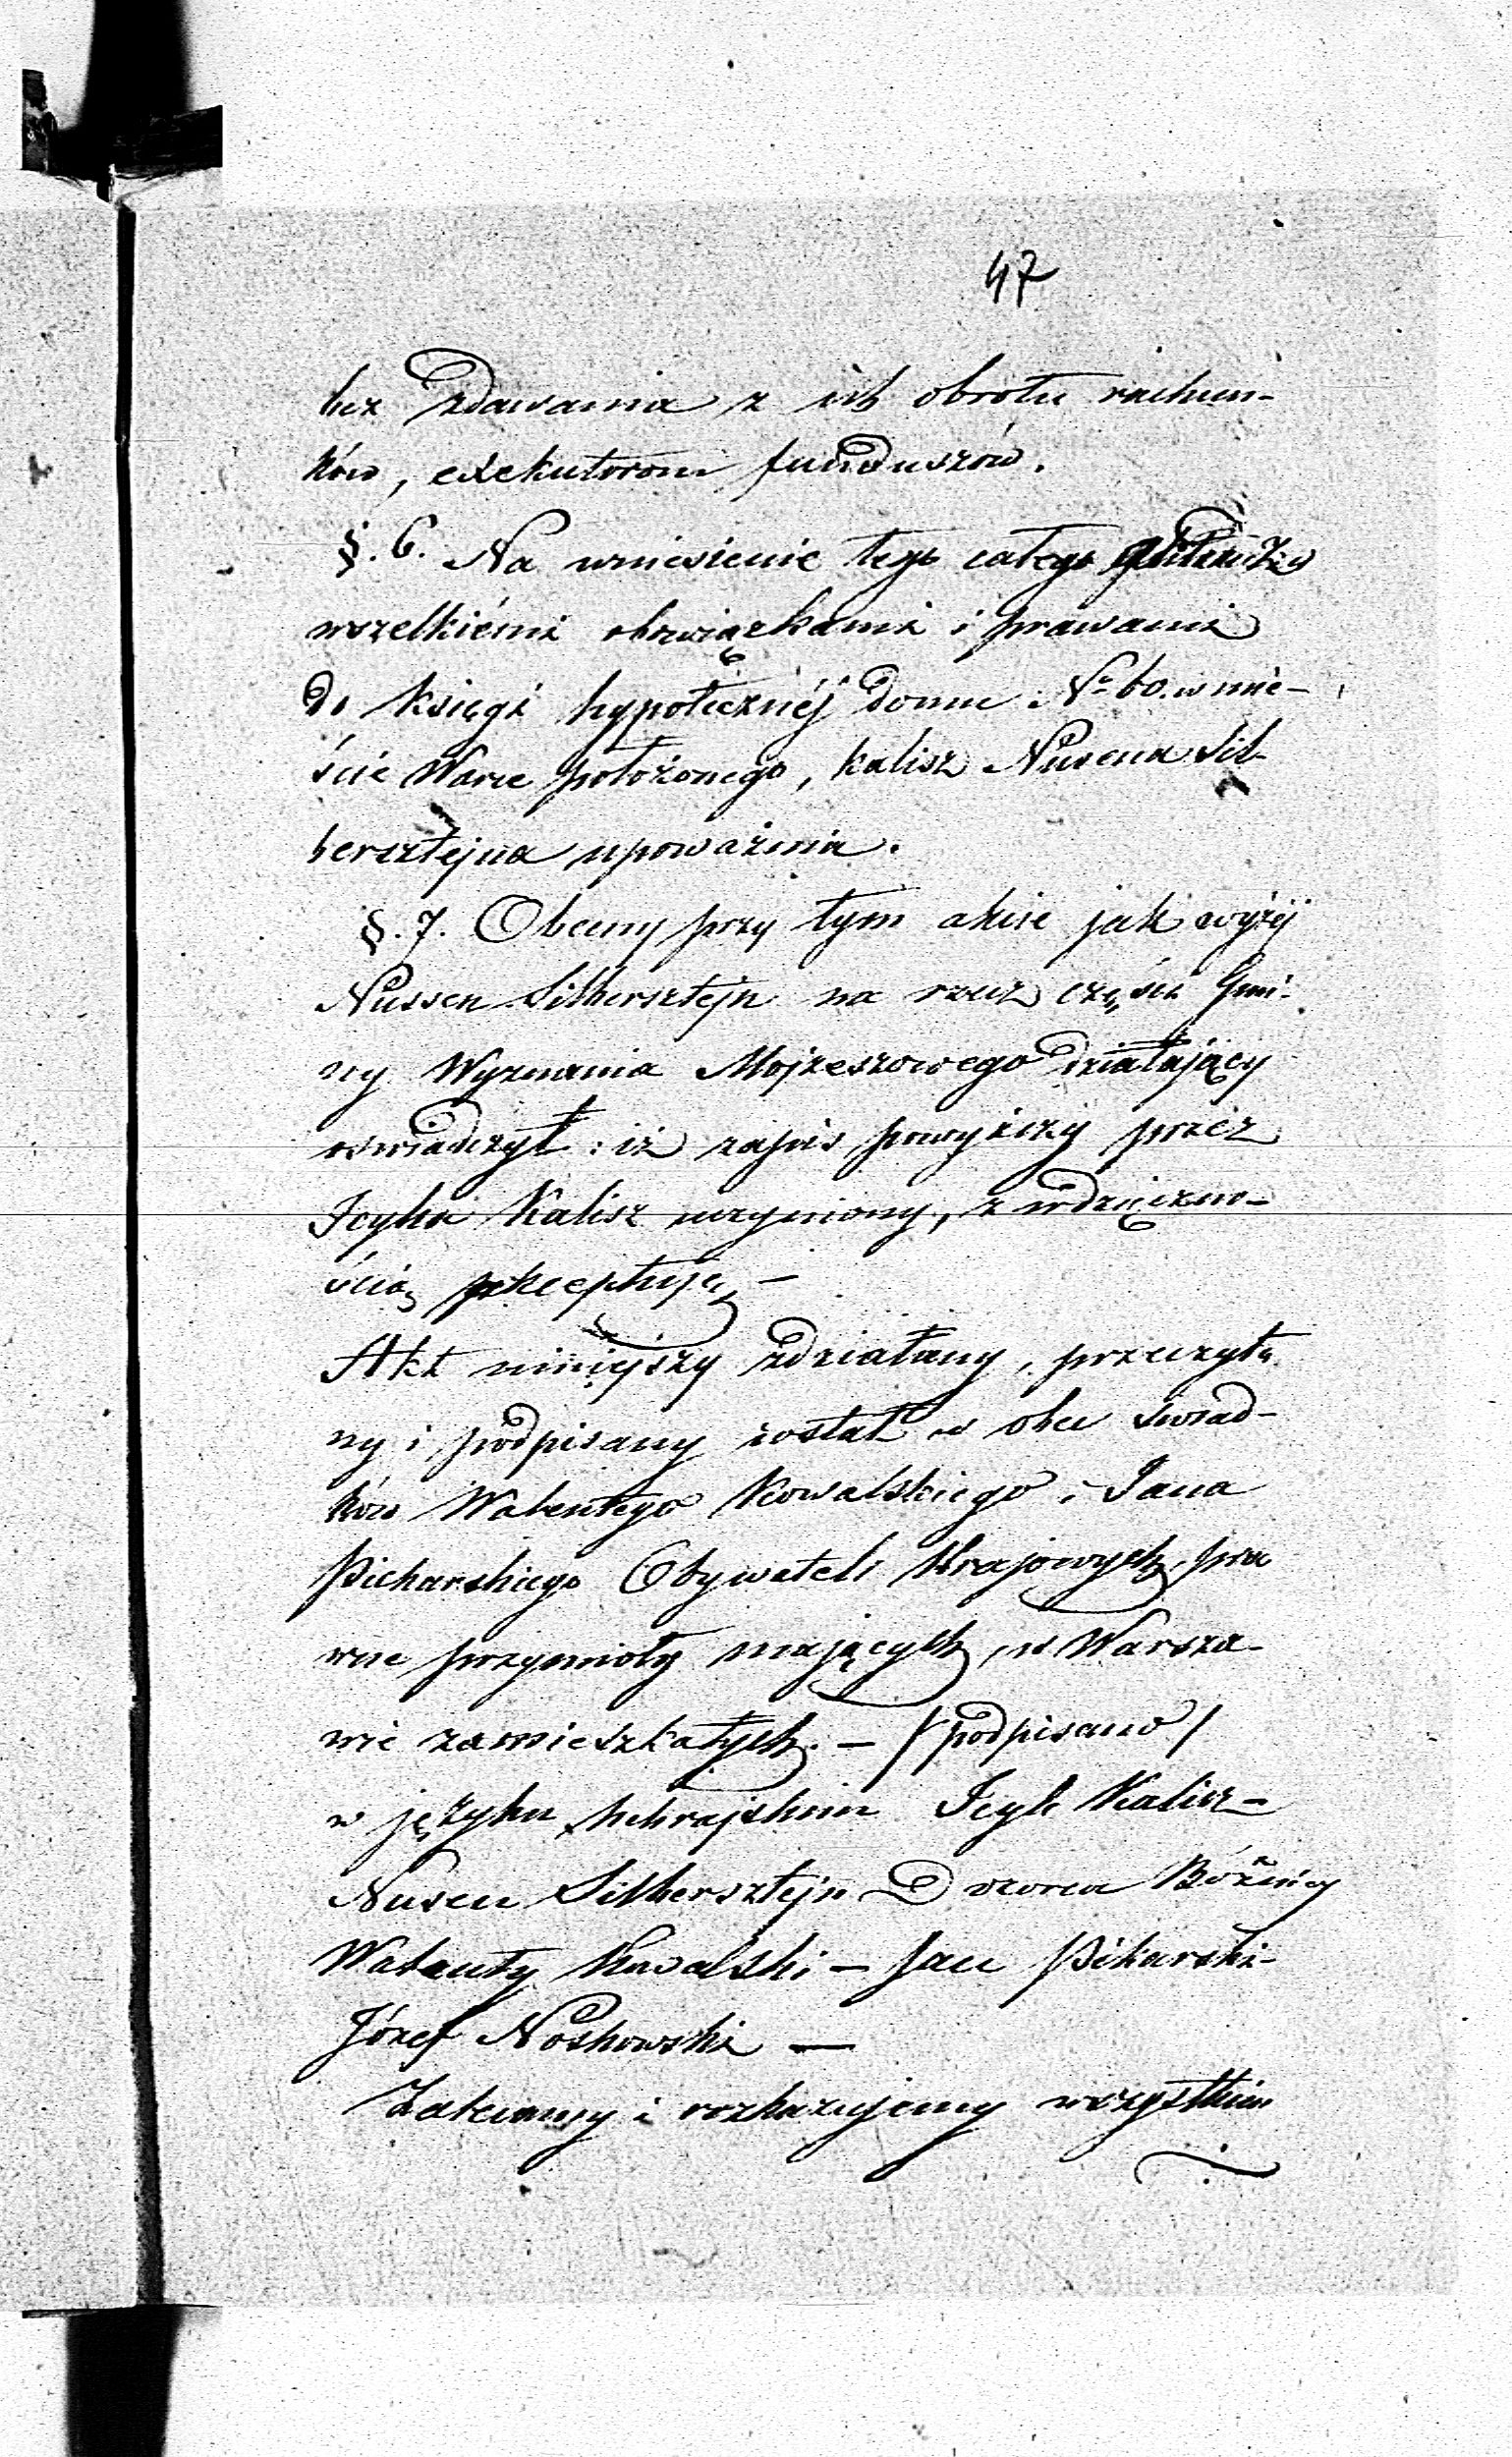 47
bez zdawania z ich obrotu rachun-
ków, exekutorom funduszów.
§. 6. Na wniesienie tego całego
wszelkiémi obowiązkami i prawami
do księgi hypotecznéj domu № 60. w mie-
ście Warce położonego, Kalisz Nusena Sil-
bersztejna upoważnia.
§. 7. Obecny przy tym akcie jak wyżéj
Nussen Silbersztejn na rzecz części Gmi-
ny Wyznania Mojżeszowego działający
oświadczył: iż zapis powyższy przez
Icyka Kalisz uczyniony, z wdzięczno-
ścią akceptuje, —
Akt niniejszy zdziałany, przeczyta
ny i podpisany został w obec świad-
ków Walentego Kowalskiego i Jana
Piekarskiego Obywateli Krajowych, pra
wne przymioty mających, w Warsza-
wie zamieszkałych. — /podpisano/
w języku hebrajskim Icyk Kalisz —
Nusen Silbersztejn Dozorca Bóżnicy
Walenty Kowalski — Jan Pikarski —
Józef Noskowski —
Zalecamy i rozkazujemy wszystkim